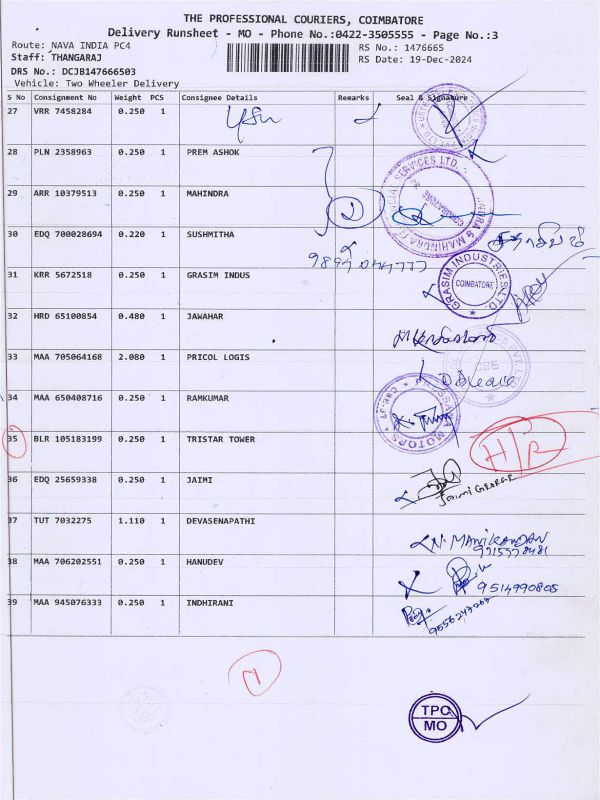 THE PROFESSIONAL COURIERS, COIMBATORE
Delivery Runsheet - MO - Phone No.:0422-3505555 - Page No.:3
Route: NAVA INDIA PC4
RS No.: 1476665
Staff: THANGARAJ
RS Date: 19-Dec-2024
DRS No.: DCJB147666503
Vehicle: Two Wheeler Delivery
S No Consignment No Weight PCS Consignee Details Remarks Seal & Signature
27 VRR 7458284 0.250 1
28 PLN 2358963 0.250 1 PREM ASHOK
29 ARR 10379513 0.250 1 MAHINDRA
30 EDQ 700028694 0.220 1 SUSHMITHA
31 KRR 5672518 0.250 1 GRASIM INDUS
GRASIM INDUSTRIES LTD.
COIMBATORE
32 HRD 65100854 0.480 1 JAWAHAR
33 MAA 705064168 2.080 1 PRICOL LOGIS
34 MAA 650408716 0.250 1 RAMKUMAR
MOTORS
35 BLR 105183199 0.250 1 TRISTAR TOWER
36 EDQ 25659338 0.250 1 JAIMI
JAIMI GEORGE
37 TUT 7032275 1.110 1 DEVASENAPATHI
N. MANIKANDAN
38 MAA 706202551 0.250 1 HANUDEV
9514990805
39 MAA 945076333 0.250 1 INDHIRANI
TPC
MO